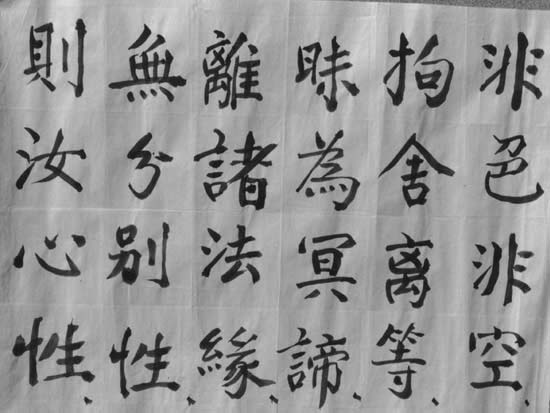 非色非空、
拘舍离等、
昧為冥諦、
離諸法緣、
無分别性、
則汝心性、